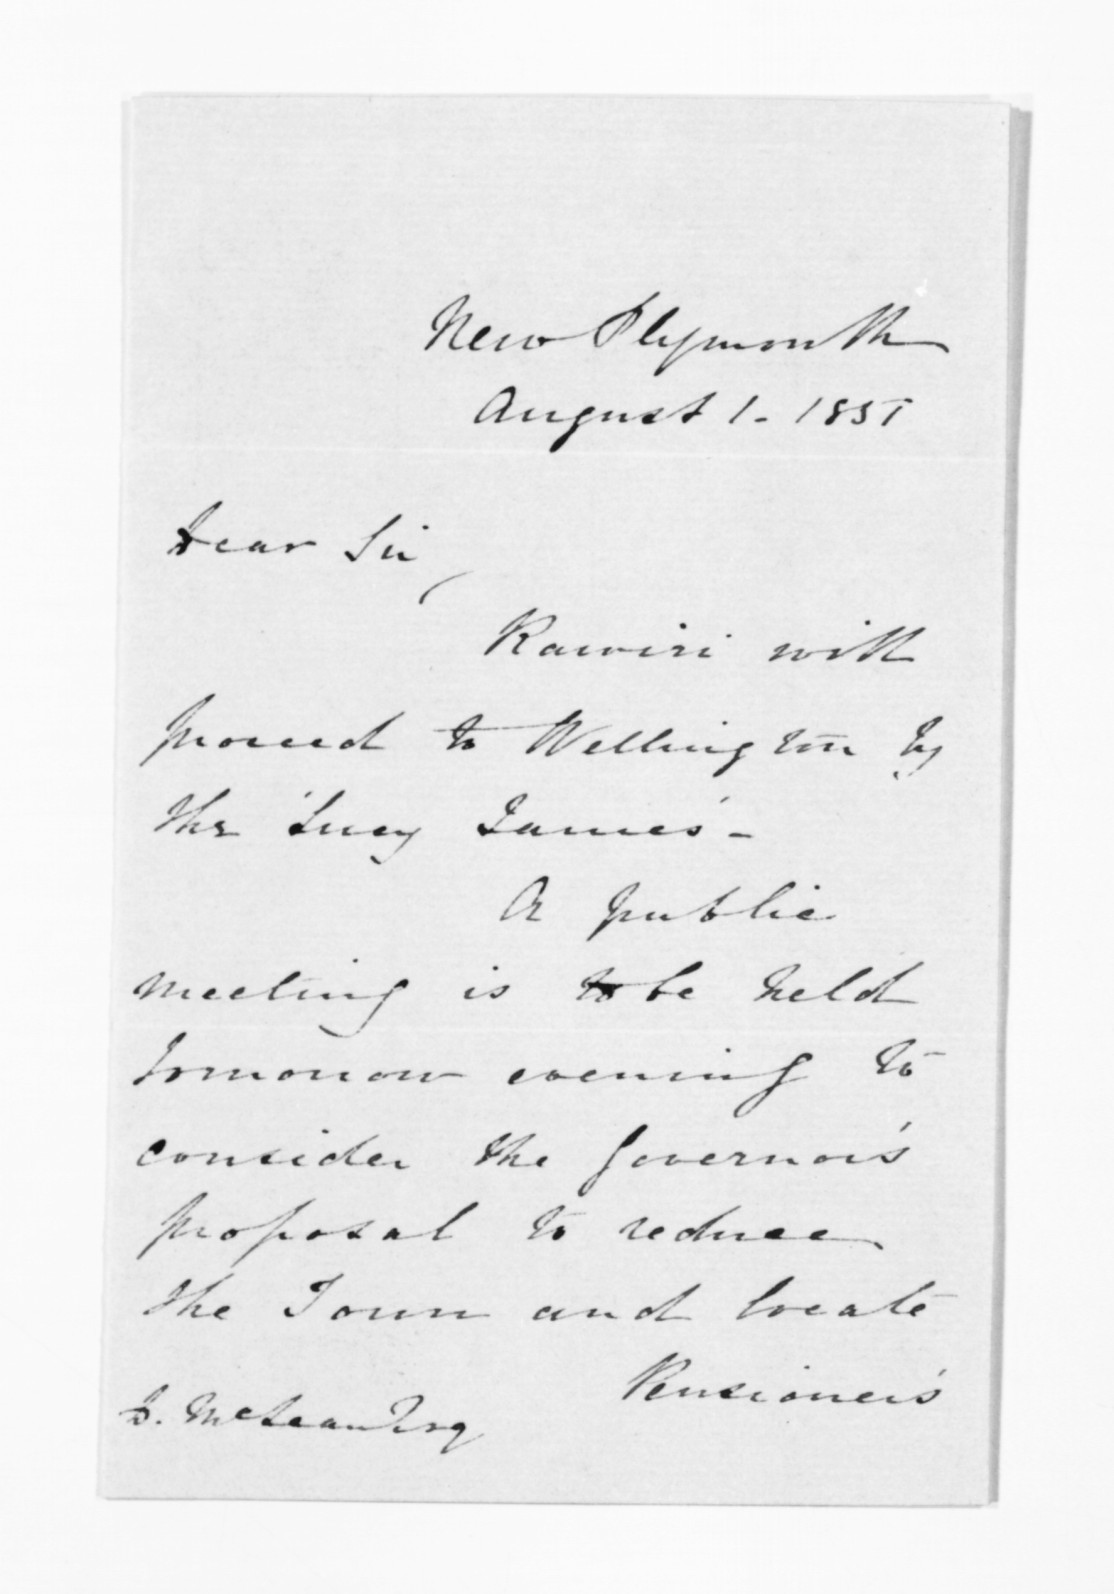 New Plymouth
August 1. 1851
Dear Sir,
Rawiri will
proceed to Wellington by
the 'Lucy James' -
A public
meeting is to be held
tomorrow evening to
consider the Governor's
proposal to reduce
the Town and locate
Pensioners
D. McLean Esq